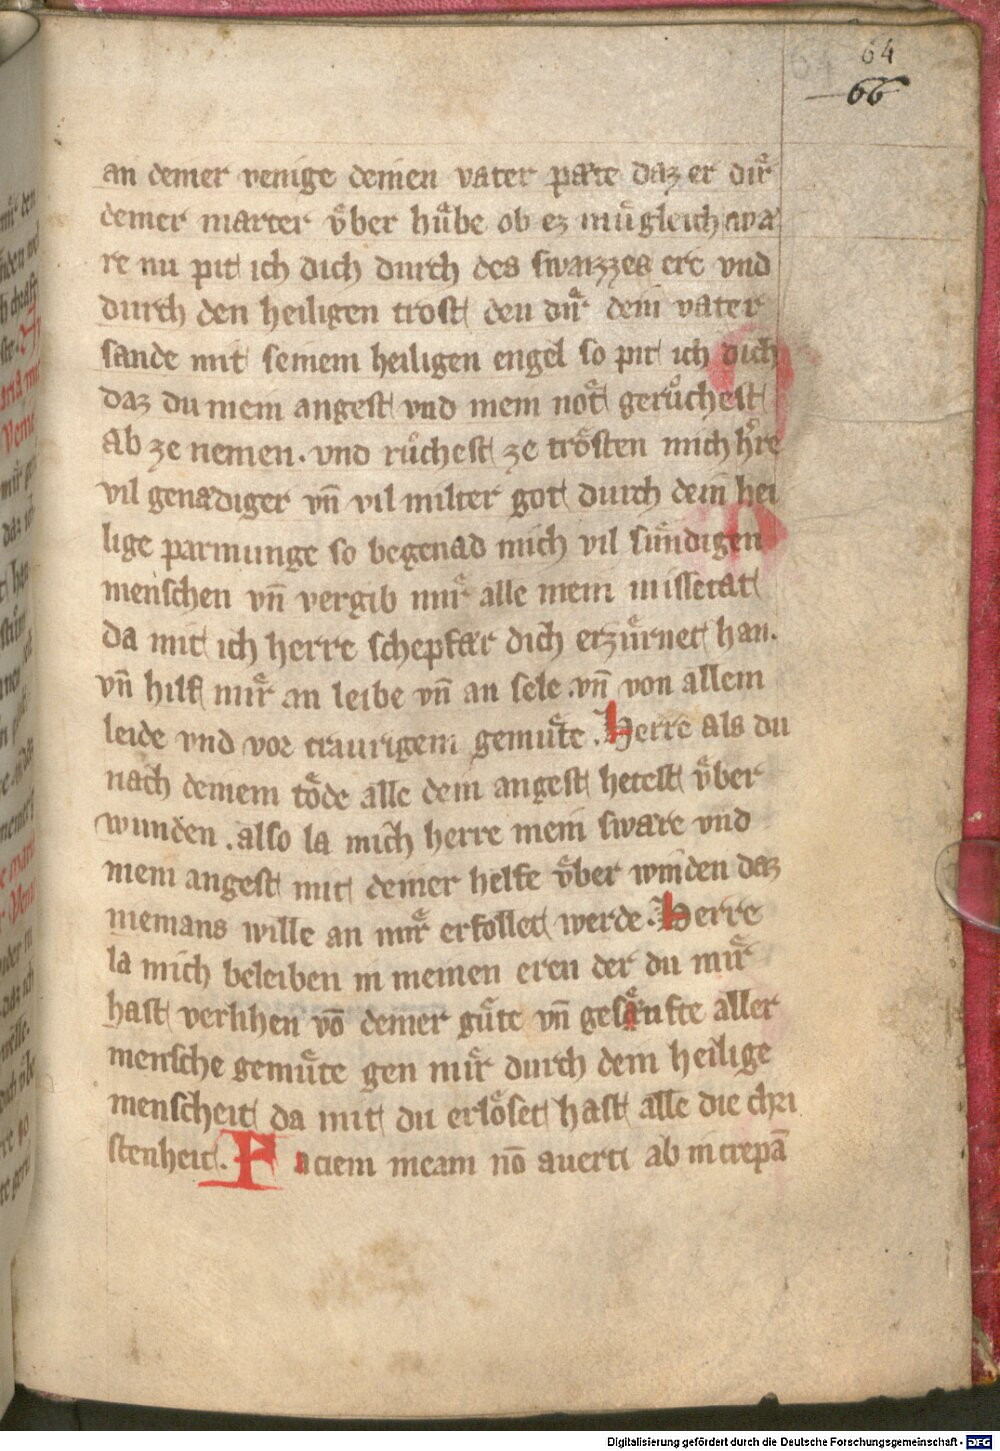 64
66
an deiner venige deinen vater pæte daz er dir̂
deiner marter v̂ber hûbe ob ez mûgleich wæ
re nu pit ich dich durch des swaizzes ere vnd
durch den heiligen trost den dir̂ dein vater
sande mit seinem heiligen engel so pit ich dich
daz du mein angest vnd mein nôt gerůchest
ab ze nemen. vnd růchest ze trôsten mich hͤre
vil genædiger vn̄ vil milter got durch dein hei
lige parmunge so begenad mich vil sûndigen
menschen vn̄ vergib mir̂ alle mein missetat
da mit ich herre schepfær dich erzûrnet han.
vn̄ hilf mir̂ an leibe vn̄ an sele .vn̄ von allem
leide vnd vor traurigem gemûte . Herre als du
nach deinem tôde alle dein angest hetest v̂ber
wunden .also la mich herre mein swære vnd
mein angest mit deiner helfe v̂ber winden daz
niemans wille an mir̂ erfollet werde . Herre
la mich beleiben in meinen eren der du mir̂
hast verlihen vō deiner gûte vn̄ gesænfte aller
mensche gemûte gen mir̂ durch dein heilige
menscheit da mit du erlôset hast alle die chri
stenheit. Faciem meam nō auerti ab increpā
Digitalisierung gefördert durch die Deutsche Forschungsgemeinschaft - DFG